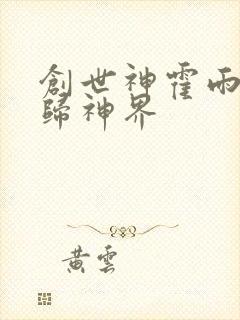 創世神霍雨
歸神界
黃雲